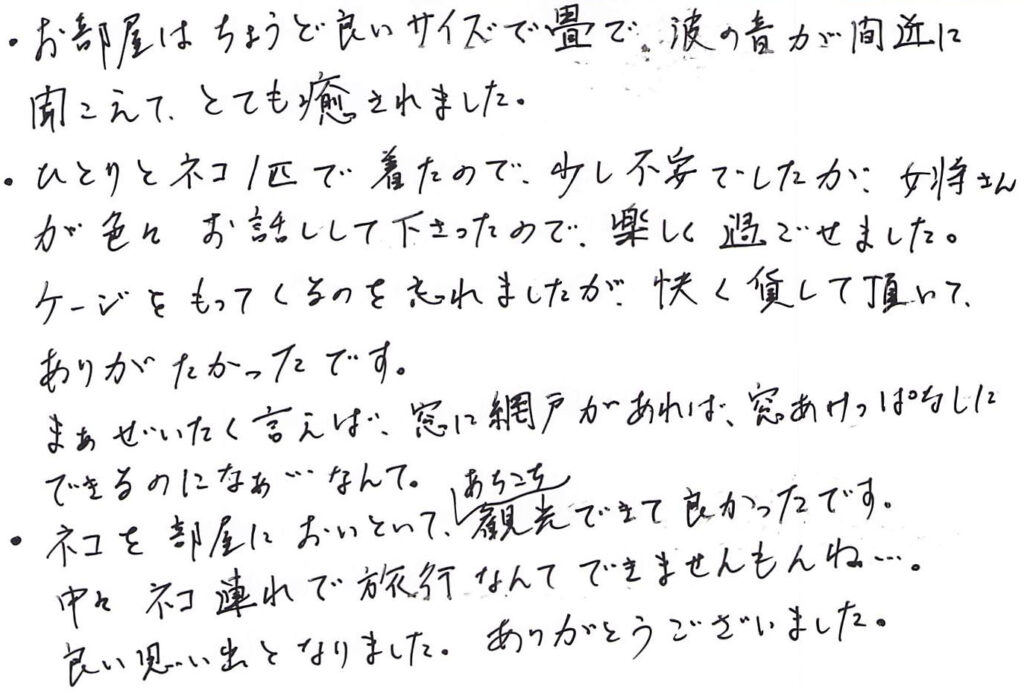 ・お部屋はちょうど良いサイズで畳で、波の音が間近に
聞こえて、とても癒されました。
・ひとりとネコ1匹で着たので、少し不安でしたが、女将さん
が色々お話しして下さったので、楽しく過ごせました。
ケージをもってくるのを忘れましたが、快く貸して頂いて、
ありがたかったです。
まぁぜいたく言えば、窓に網戸があれば、窓あけっぱなしに
できるのになぁ…なんて。
・ネコを部屋においといて、あちこち観光できて良かったです。
中々ネコ連れで旅行なんてできませんもんね…。
良い思い出となりました。ありがとうございました。